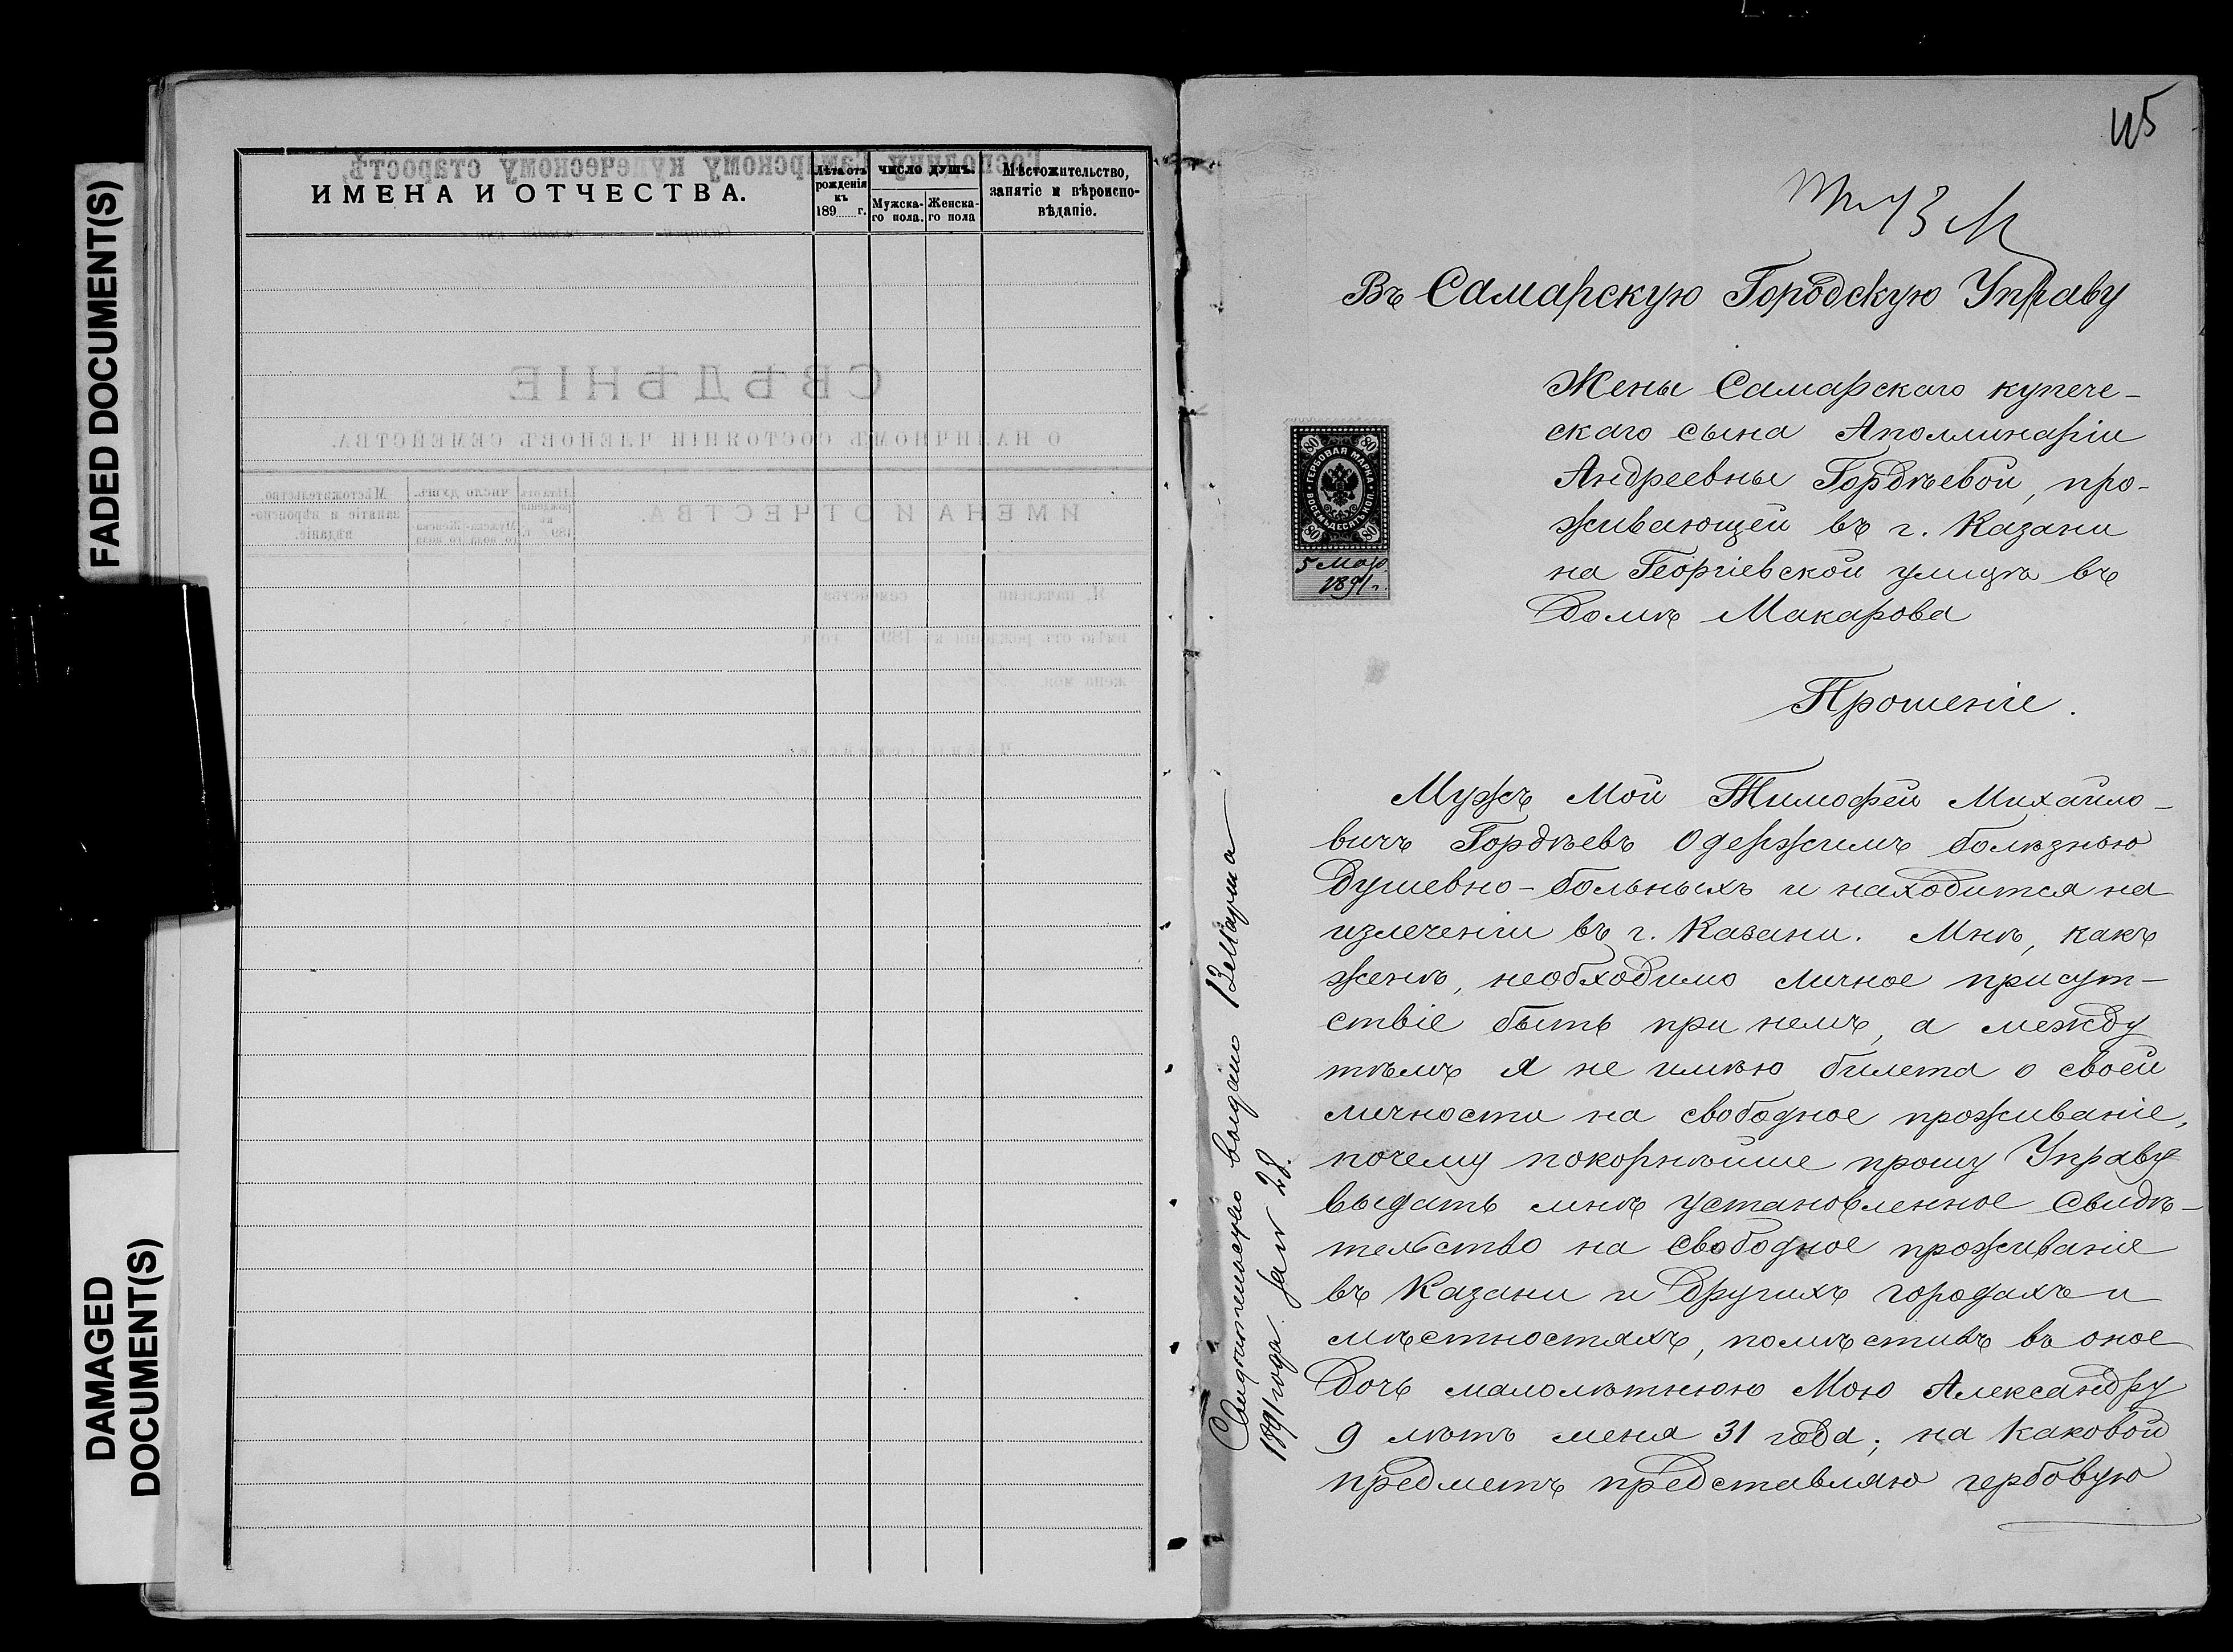 FADED DOCUMENT(S)
DAMAGED
DOCUMENT(S)
ИМЕНА И ОТЧЕСТВА.
Лѣта отъ
рожденія
къ
189 г.
число душъ.
Мужска-
го пола.
Женска-
го пола
Мѣстожительство,
занятіе и вѣроиспо-
вѣданіе.
Господину Самарскому купеческому старостѣ,
СВѢДѢНІЕ
О НАЛИЧНОМЪ СОСТОЯНІИ ЧЛЕНОВЪ СЕМЕЙСТВА.
ИМЕНА И ОТЧЕСТВА.
Въ Самарскую Городскую Управу
Жены Самарскаго купече-
скаго сына Аполлинаріи
Андреевны Гордѣевой, про-
живающей въ г. Казани
на Георгіевской улицѣ въ
Домѣ Макарова
ГЕРБОВАЯ МАРКА
ВОСЕМЬДЕСЯТЪ КОП.
80 80
80 80
5 Мар.
1891 г.
Прошеніе.
Мужъ Мой Тимофей Михайло-
вичъ Гордѣевъ Одержимъ болѣзнью
Душевно-больныхъ и находится на
излеченіи въ г. Казани. Мнѣ, какъ
женѣ, необходимо личное присут-
ствіе быть при немъ, а между
тѣмъ я не имѣю билета о своей
личности на свободное проживаніе,
почему покорнѣйше прошу Управу
выдать мнѣ установленное Свидѣ-
тельство на свободное проживаніе
въ Казани и Другихъ городахъ и
мѣстностяхъ, помѣстивъ въ оное
Дочь малолѣтнюю Мою Александру
9 лѣтъ меня 31 года; на каковой
предметъ представляю гербовую
Свидѣтельство выдано 13 Марта
1891 года за № 28.